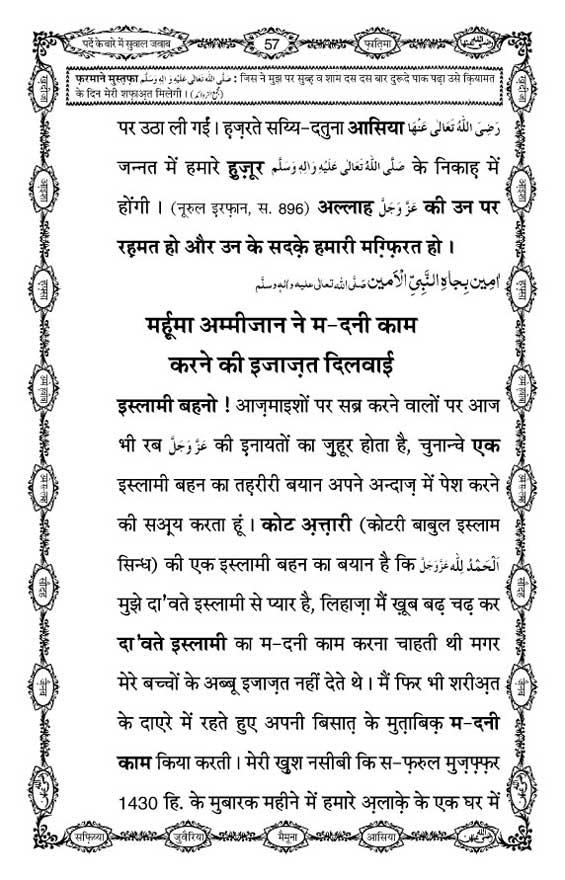 पर्दे के बारे में सुवाल जवाब
57
फ़ातिमा
फ़रमाने मुस्तफ़ा صَلَّى اللهُ تَعَالٰى عَلَيْهِ وَاٰلِهٖ وَسَلَّم : जिस ने मुझ पर सुब्ह व शाम दस दस बार दुरूदे पाक पढ़ा उसे क़ियामत
के दिन मेरी शफ़ाअ़त मिलेगी ।
पर उठा ली गईं । ह़ज़रते सय्यि-दतुना आसिया رَضِىَ اللهُ تَعَالٰى عَنْهَا
जन्नत में हमारे हुज़ूर صَلَّى اللهُ تَعَالٰى عَلَيْهِ وَاٰلِهٖ وَسَلَّم के निकाह में
होंगी । (नूरुल इरफ़ान, स. 896) अल्लाह عَزَّوَجَلَّ की उन पर
रह़मत हो और उन के सदक़े हमारी मग़्फ़िरत हो ।
اٰمِين بِجَاهِ النَّبِيِّ الْاَمِين صَلَّى اللهُ تَعَالٰى عَلَيْهِ وَاٰلِهٖ وَسَلَّم
मर्हूमा अम्मीजान ने म-दनी काम
करने की इजाज़त दिलवाई
इस्लामी बहनो ! आज़माइशों पर सब्र करने वालों पर आज
भी रब عَزَّوَجَلَّ की इनायतों का ज़ुहूर होता है, चुनान्चे एक
इस्लामी बहन का तह़रीरी बयान अपने अन्दाज़ में पेश करने
की सअ़्य करता हूं । कोट अ़त्तारी (कोटरी बाबुल इस्लाम
सिन्ध) की एक इस्लामी बहन का बयान है कि اَلْحَمْدُ لِلّٰه عَزَّوَجَلَّ
मुझे दा'वते इस्लामी से प्यार है, लिहाज़ा मैं ख़ूब बढ़ चढ़ कर
दा'वते इस्लामी का म-दनी काम करना चाहती थी मगर
मेरे बच्चों के अब्बू इजाज़त नहीं देते थे । मैं फिर भी शरीअ़त
के दाएरे में रहते हुए अपनी बिसात़ के मुत़ाबिक़ म-दनी
काम किया करती । मेरी ख़ुश नसीबी कि स-फ़रुल मुज़फ़्फ़र
1430 हि. के मुबारक महीने में हमारे अ़लाक़े के एक घर में
सफ़िय्या
जुवैरिया
मैमूना
आसिया